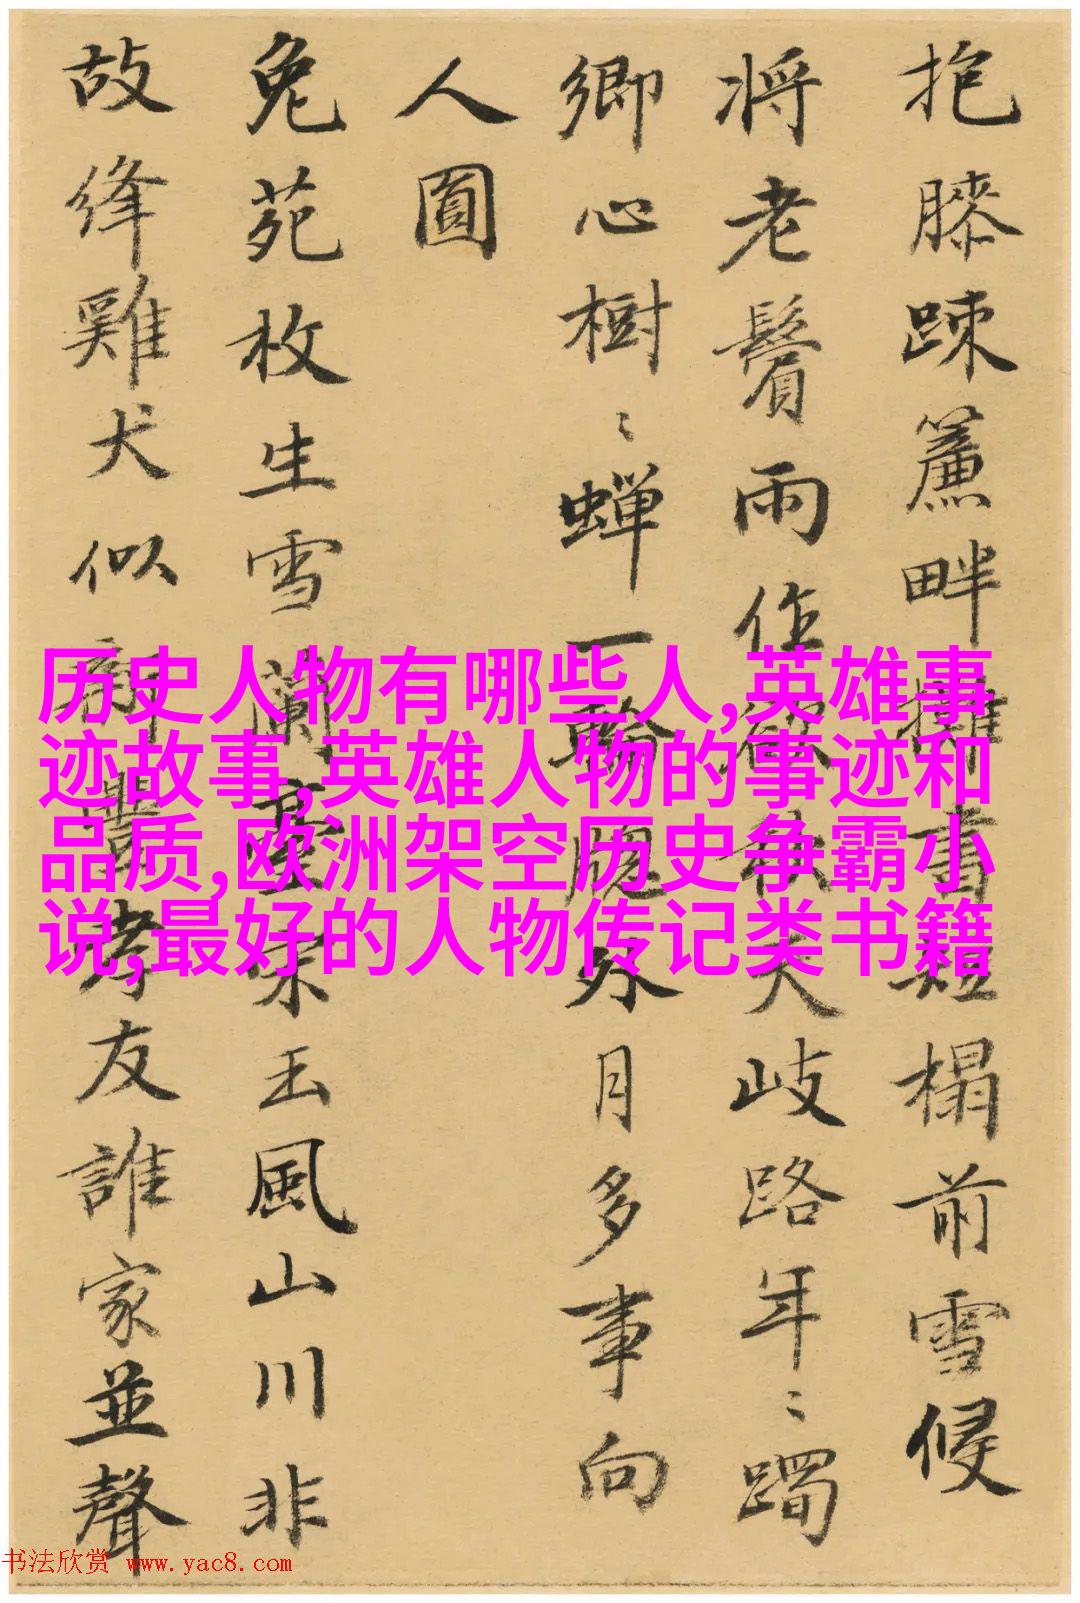 抱膝疎簾畔擁書短榻前雪候
将老鬢雨作欲秋天岐路年〻躅
鄉心樹〻蟬一輪牕外月多事向
人圓
兔苑枚生雪蘭臺宋玉風山川非
故絳雞犬似新豐孝友誰家並聲
历史人物有哪些人,英雄事
迹故事,英雄人物的事迹和
品质,欧洲架空历史争霸小
说,最好的人物传记类书籍
书法欣赏 www.yac8.com